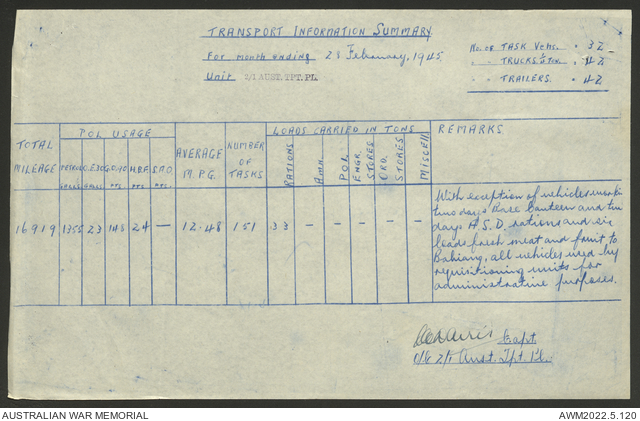 TRANSPORT INFORMATION SUMMARY
For month ending 28 February, 1945
Unit 2/1 AUST.TPT.PL.
No. OF TASK Vehs. . 32
" " TRUCKS . 42
" " TRAILERS . 42
TOTAL MILEAGE
POL USAGE
AVERAGE M.P.G.
NUMBER OF TASKS
LOADS CARRIED IN TONS
REMARKS
PETROL GALLS
GALLS
PTS.
H.B.F. PTS.
PTS.
RATIONS
Amn.
POL
ENGR. STORES
ORD. STORES
MISCELL
16919 1355 23 148 24 — 12.48 151 33 – – – – –
With exception of vehicles working
two days Base Canteen and two
days A.S.D. rations and six
loads fresh meat and fruit to
Babiang, all vehicles used by
requisitioning units for
administrative purposes.
Capt
O/C 2/1 Aust. Tpt Pl.
AUSTRALIAN WAR MEMORIAL
AWM2022.5.120